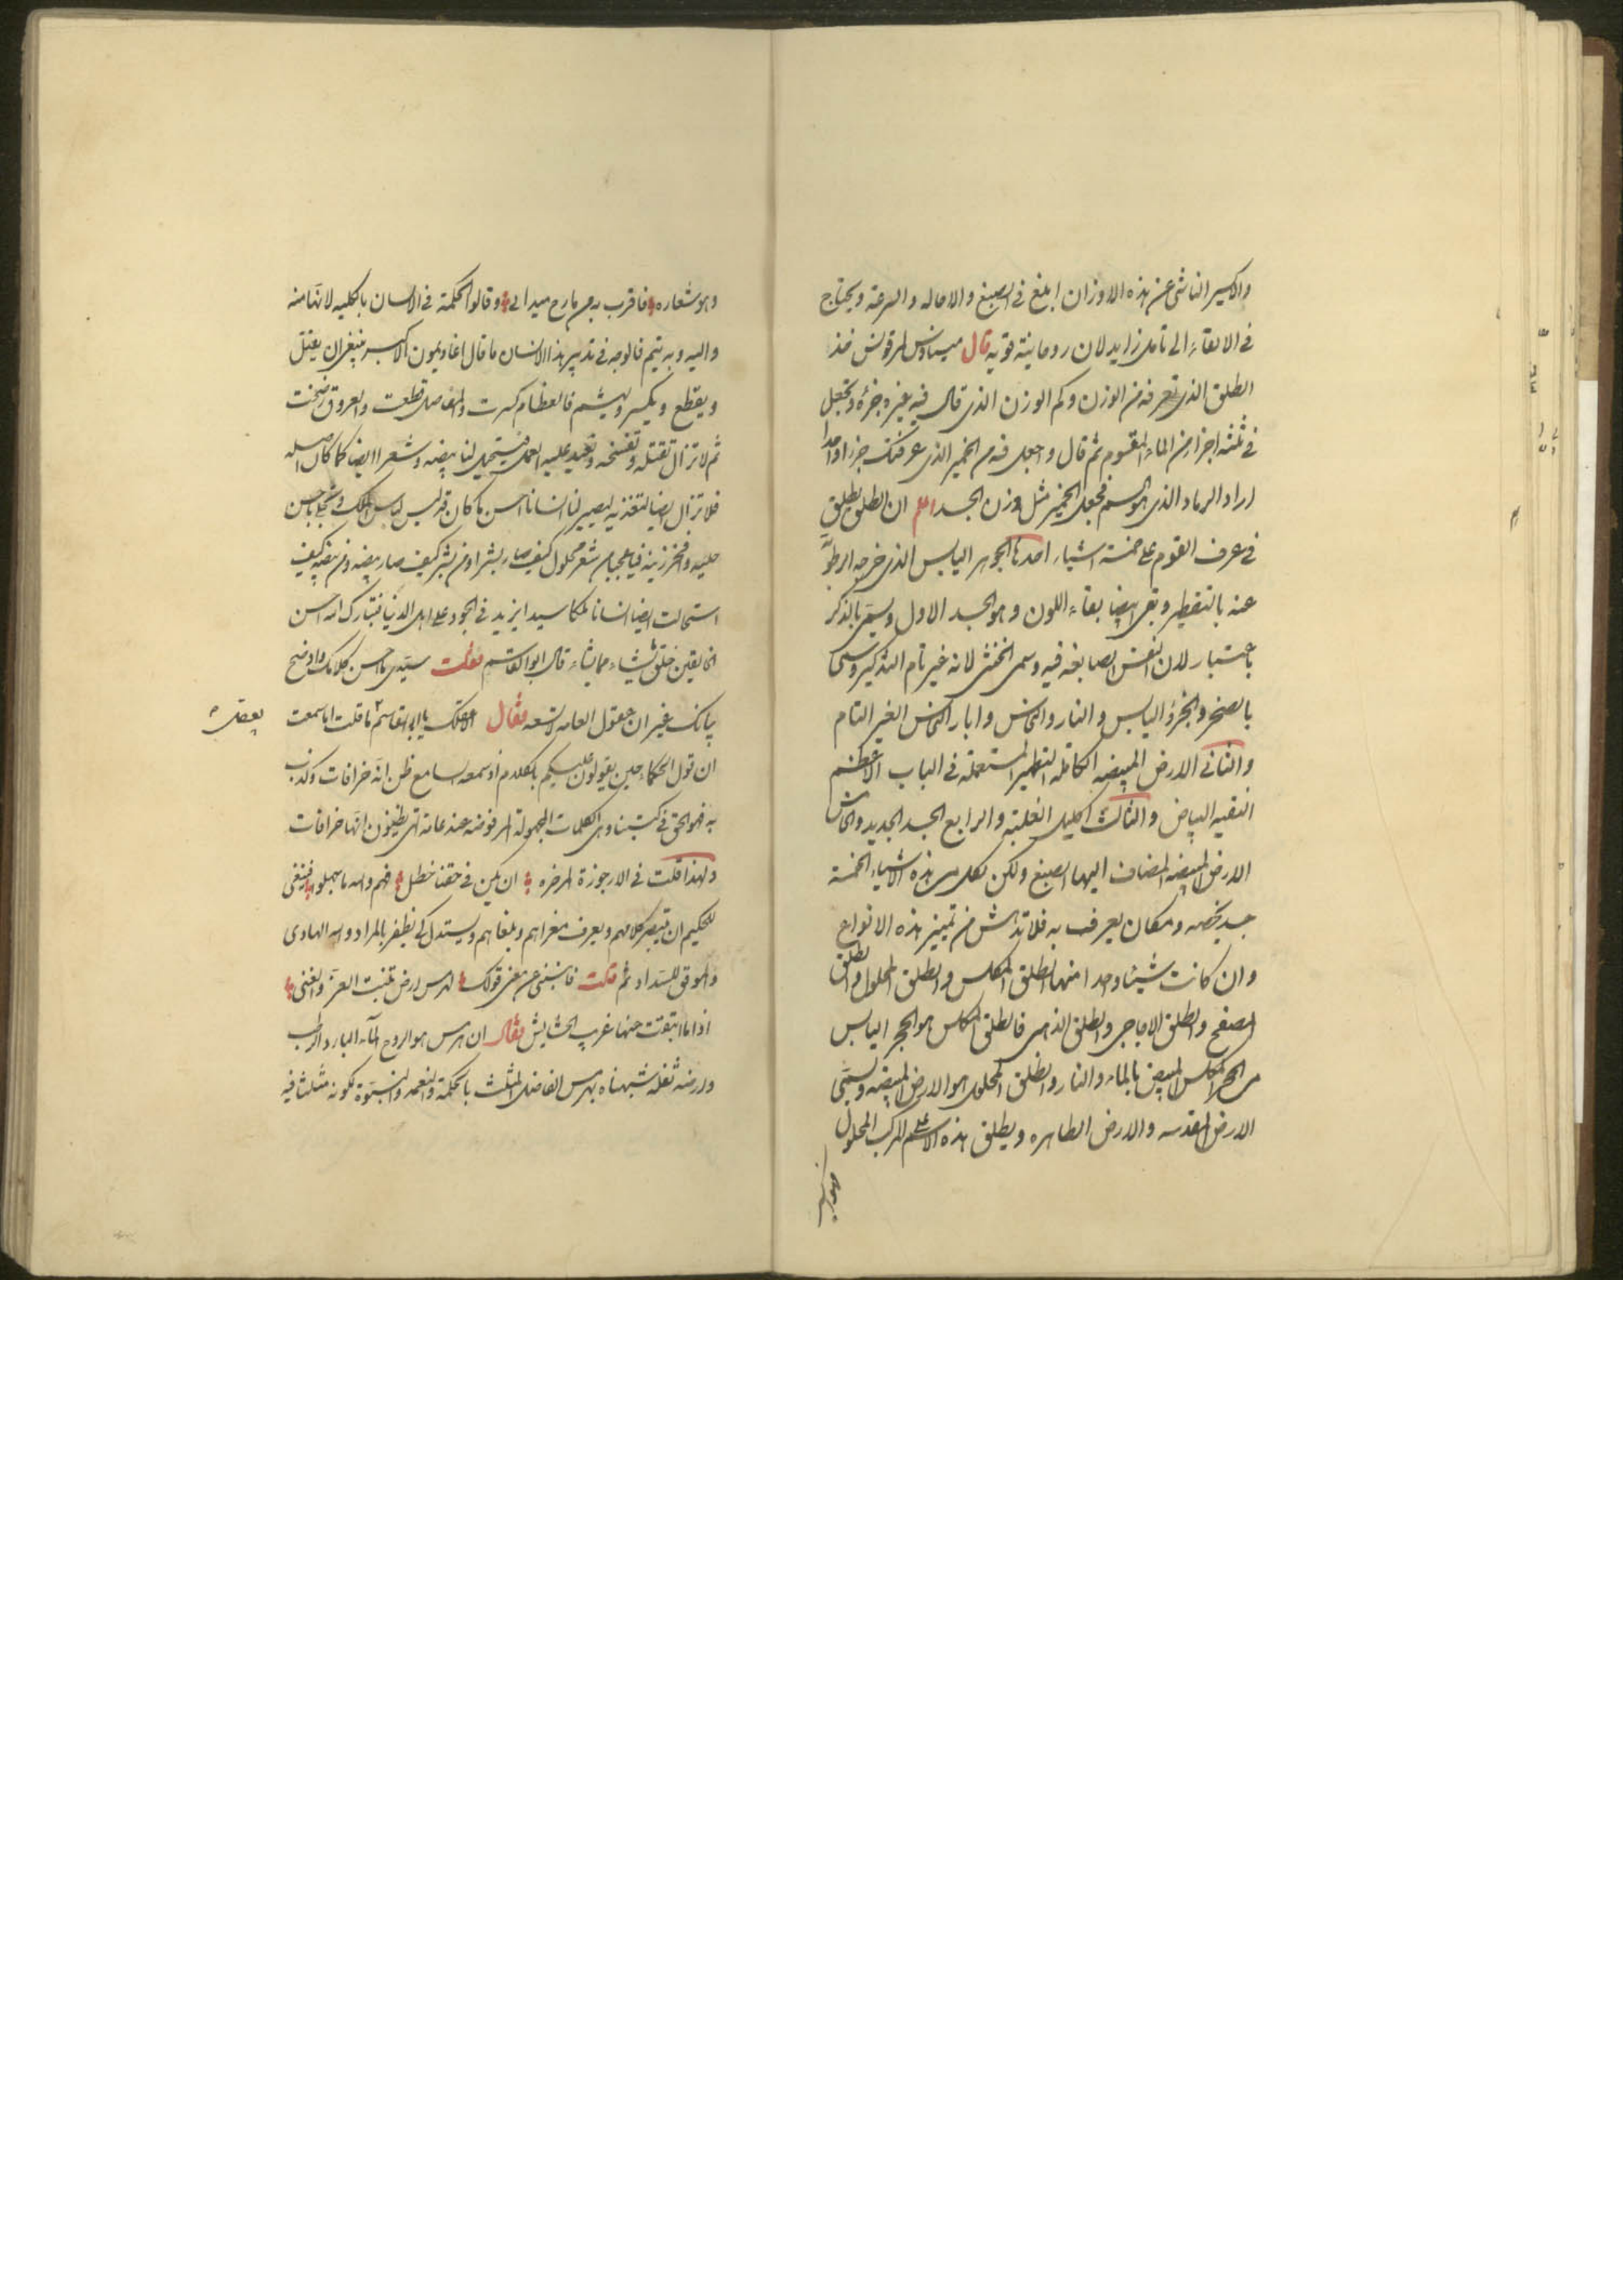 والاكسير الناشئ عن هذه الاوزان ابلغ فى الصبغ والاحاله والسرعة ويحتاج
فى الابقاء الى تامل زايد لان روحانيته قويه قال ميساوس لمرقونس فخذ
الطلق الذى تعرفه من الوزن وكم الوزن الذى قال فيه غيره جزء وتجعل
فى ثلثه اجزاء من الماء المقسوم ثم قال واجعل فيه من الخمير الذى عرفتك جزءا واحدا
اراد الرماد الذى هو السم فجعل الخمير مثل وزن الجسد اعلم ان الطلق يطلق
فى عرف القوم على خمسة اشياء احدها الجوهر اليابس الذى خرجه الرطوبة
عنه بالتقطير وبقى ايضا بقاء اللون وهو الجسد الاول ويسمى بالذكر
باعتبار لان النفس الصابغه فيه وسمى الخنثى لانه غير تام التذكير وسمى
بالصخر والحجر اليابس والنار والنحاس وابار النحاس الغير التام
والثانى الارض المبيضه الكامله التطهير المستعمله فى الباب الاعظم
النقيه البياض والثالث اكليل الغلبة والرابع الجسد الجديد والخامس
الارض المبيضه المضاف اليها الصبغ ولكن لكل من هذه الاشياء الخمسة
جسد يخصه ومكان يعرف به فلا تدهش من تمييز هذه الانواع
وان كانت شيئا واحدا منها الطلق المكلس والطلق المحلول والطلق
المصفح والطلق الزجاجى والطلق الذهبى فالطلق المكلس هو الحجر اليابس
من الحجر المكلس المبيض بالماء والنار والطلق المحلول هو الارض المبيضه ويسمى
الارض المقدسه والارض الطاهره ويطلق هذه الاسم على المركب المحلول
وهو شعاره فاقرب به من مارح ميدانى وقالوا الحكمة فى الانسان بالكليه لانها منه
واليه وبه يتم فالوجه فى تدبير هذا الانسان ما قال اغاديمون الاكبر ينبغى ان يقتل
ويقطع ويكسر ويهشم فالعظام كسرت والمفاصل قطعت والعروق رضخت
ثم لا تزال تقتله وتفسخه وتعيد عليه العمل فيستحيل لنا بيضه وشعرا ايضا كما كان اصله
فلا تزال ايضا لتغذيه ليصير لنا انسانا احسن ما كان قد لبس لباس الملك وتحلى باحسن
حليه وافخر زينه فيا عجبا من شعر محلول كيف صار بشرا ومن بشر كيف صار بيضه ومن بيضه كيف
استحالت ايضا انسانا ملكا سيدا يزيد فى الجود على اهل الدنيا فتبارك الله احسن
الخالقين خلق ما يشاء مما يشاء قال ابو القاسم فقلت سيدى ما احسن كلامك واوضح
بيانك غير ان عقول العامه لا تسعه فقال لا عقلك يا ابا القاسم ما قلت اما سمعت
يعقل
ان قول الحكماء حين يقولون عليكم بكلام لو سمعه سامع ظن انه خرافات وكذب
به فهو الحق فى كتبنا وهى الكلمات المجهولة المرفوضه عند عامة الناس يظنون انها خرافات
ولهذا قلت فى الارجوزة المزخره ان يكن فى حقنا خطل فهم والله ما جهلوا فينبغى
للحكيم ان يتبصر كلامهم ويعرف مغزاهم ومبلغاهم ويستدل كى يظفر بالمراد والله الهادى
والموفق للسداد ثم قلت فاخبرنى عن معنى قولك لهرمس ارض تنبت العز والغنى
اذا ما انتفت عنها غريب الحشايش فقال ان هرمس هو الروح الماء البارد الرطب
وارضه ثفله شبهناه بهرمس الفاضل المثلث بالحكمة والنعمه والنبوة لكونه مثلثا فيه